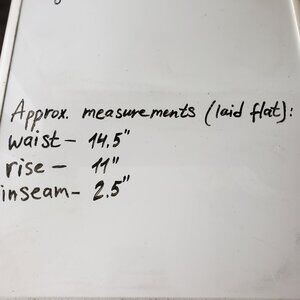 Approx. measurements (laid flat):
waist - 14.5"
rise - 11"
inseam - 2.5"